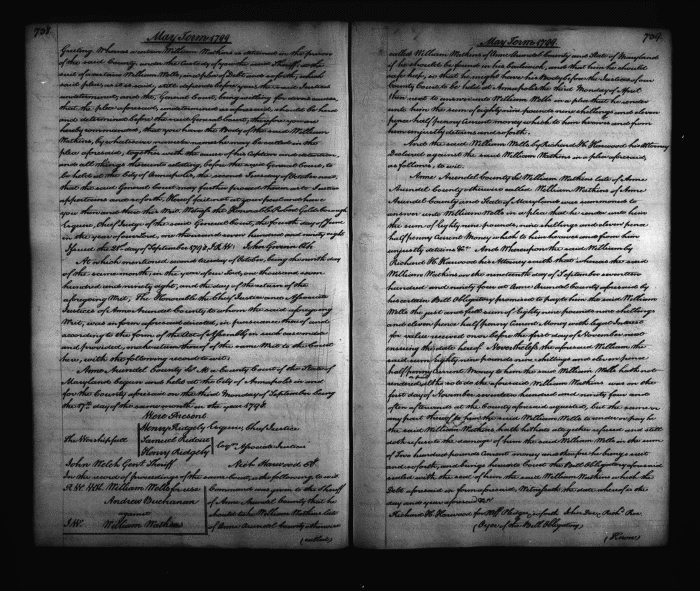 708.
May Term 1799
Greeting Whereas a certain William Mathews is detained in the prison
of the said County, under the custody of you the said Sheriff, at the
suit of a certain William Wells, in a plea of Debt and so forth, which
said plea, as it is said, still depends before you the said Justices
undetermined, and the General Court being willing for divers causes
that the plea aforesaid, undetermined as aforesaid, should be heard
and determined before the said General Court, therefore you are
hereby commanded, that you have the Body of the said William
Mathews, by whatsoever name he may be called in the
plea aforesaid, together with the cause of his Caption and detention,
and all things thereunto relating, before the said General Court, to
be held at the City of Annapolis, the second Tuesday of October next,
that the said General Court may further proceed thereon as to Justice
appertains and so forth, Hereof fail not at your peril and have
you then and there this Writ. Witness the Honorable Robert Goldsborough
Esquire, Chief Judge of the said General Court, the day of June
in the year of our Lord, one thousand seven hundred and ninety eight
Issued the 21st day of September 1798. John Gwinn Clk
At which mentioned second tuesday of October being the ninth day
of the same month, in the year of our Lord, one thousand seven
hundred and ninety eight, and the day of the return of the
aforegoing Writ, The Honorable the Chief Justice and Associate
Justices of Anne Arundel County to whom the said aforegoing
Writ, was in form aforesaid directed, in pursuance thereof and
according to the form of the Act of Assembly in such case made
and provided, make return thereof of the same Writ to the Court
here, with the following record to wit.
Anne Arundel County Sct. At a County Court of the State of
Maryland begun and held at the City of Annapolis in and
for the County aforesaid on the third Monday of September being
the 17th day of the same month in the year 1798
Were Present
The Worshipfull
Henry Ridgely Esquire, Chief Justice
Samuel
Henry Ridgely
Esqrs. Associate Justices
John Welch Gent Sheriff
Nich Harwood Clk
In the record of proceedings of the same Court, is the following, to wit
William Wells for use
Andrew Buchanan
against
William Mathews
Command was given to the Sheriff
of Anne Arundel County that he
should take William Mathews late
of Anne Arundel County otherwise
(called)
May Term 1799.
709.
called William Mathews of Anne Arundel County and State of Maryland
if he should be found in his bailiwick, and that him he should
safe keep, so that he might have his Body before the Justices of our
County Court to be held at Annapolis the third Monday of April
then next to answer unto William Wells in a plea that he render
unto him the sum of eighty nine pounds nine shillings and eleven
pence half penny Current money which to him he owes and from
him unjustly detains and so forth.
And the said William Wells by Richard H. Harwood his Attorney
Declared against the said William Mathews in a plea aforesaid,
as follows; to wit,
Anne Arundel County Sct. William Mathews late of Anne
Arundel County otherwise called William Mathews of Anne
Arundel County and State of Maryland was summoned to
answer unto William Wells in a plea that he render unto him
the sum of Eighty nine pounds, nine shillings and eleven pence
half penny Current Money which to him he owes and from him
unjustly detains &c. And Whereupon the said William by
Richard H. Harwood his Attorney saith that whereas the said
William Mathews on the nineteenth day of September seventeen
hundred and ninety four at Anne Arundel County aforesaid by
his certain Bill Obligatory promised to pay to him the said William
Wells the just and full sum of Eighty nine pounds nine shillings
and eleven pence half penny Current Money with legal Interest
for value received on or before the first day of November next
ensuing the date hereof Nevertheless the aforesaid William the
said sum Eighty nine pounds nine shillings and eleven pence
half penny Current Money to him the said William Wells hath not
rendered altho so to do the aforesaid William Mathews was on the
first day of November seventeen hundred and ninety four and
often afterwards at the County aforesaid requested, but the same or
any part thereof to him the said William Wells to render or pay he
the said William Mathews hath hitherto altogether refused and still
doth refuse to the damage of him the said William Wells in the sum
of Two hundred pounds Current money and therefore he brings suit
and so forth, and brings here into Court the Bill Obligatory aforesaid
sealed with the seal of him the said William Mathews which the
Debt aforesaid in form aforesaid, Witnesseth the date whereof is the
day and year aforesaid &c.
Richard H. Harwood for Plff Pledges &c John Doe, Richd. Roe
(Copy of the Bill Obligatory)